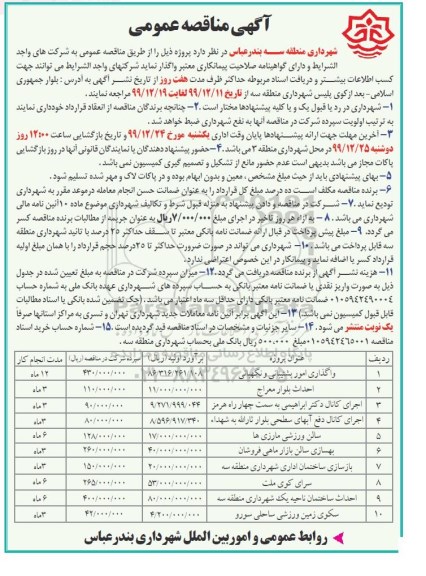 آگهی مناقصه عمومی
شهرداری منطقه سه بندرعباس در نظر دارد پروژه ذیل را از طریق مناقصه عمومی به شرکت های واجد
الشرایط و دارای گواهینامه صلاحیت پیمانکاری معتبر واگذار نماید شرکتهای واجد الشرایط می توانند جهت
کسب اطلاعات بیشتر و دریافت اسناد مربوطه حداکثر ظرف مدت هفت روز از تاریخ نشر آگهی به آدرس : بلوار جمهوری
اسلامی- بعد از کوی پلیس شهرداری منطقه سه از تاریخ ۹۹/۱۲/۱۱ لغایت ۹۹/۱۲/۱۹ مراجعه نمایند .
۱- شهرداری در رد یا قبول یک و یا کلیه پیشنهادها مختار است . ۲- چنانچه برندگان مناقصه از انعقاد قرارداد خودداری نمایند
به ترتیب اولویت سپرده شرکت در مناقصه آنها به نفع شهرداری ضبط خواهد شد.
۳- آخرین مهلت جهت ارائه پیشنهادها پایان وقت اداری یکشنبه مورخ ۹۹/۱۲/۲۴ و تاریخ بازگشایی ساعت ۱۲:۰۰ روز
دوشنبه ۹۹/۱۲/۲۵ در محل شهرداری منطقه ۳ می باشد ۴- حضور پیشنهاد دهندگان یا نمایندگان قانونی آنها در روز بازگشایی
پاکات مجاز می باشد بدیهی است عدم حضور مانع از تشکیل و تصمیم گیری کمیسیون نمی باشد .
۵- بهای پیشنهادی باید از حیث مبلغ مشخص ، معین و بدون ابهام بوده و در پاکات لاک و مهر شده تسلیم شود .
۶- برنده مناقصه مکلف است ده درصد مبلغ کل قرارداد را به عنوان ضمانت حسن انجام معامله در موعد مقرر به شهرداری
تودیع نماید .۷- شرکت در مناقصه و دادن پیشنهاد به منزله قبول شرط و تکالیف شهرداری موضوع ماده ۱۰ آئین نامه مالی
شهرداری می باشد . ۸- به ازاء هر روز تاخیر در اجرای مبلغ ۷/۰۰۰/۰۰۰ ریال به عنوان جریمه از مطالبات برنده مناقصه کسر
می گردد . ۹- مبلغ پیش پرداخت در قبال ارائه ضمانت نامه بانکی معتبر تا سقف حداکثر ۲۵ درصد با تائید شهرداری منطقه
سه قابل پرداخت می باشد ۱۰- شهرداری می تواند در صورت ضرورت حداکثر تا ۲۵درصد حجم قرارداد را با همان مبلغ اولیه
قرارداد کسر یا اضافه نماید و پیمانکار در این خصوص اعتراضی ندارد.
۱۱- هزینه نشر آگهی از برنده مناقصه دریافت می گردد.۱۲- میزان سپرده شرکت در مناقصه به مبلغ تعیین شده در جدول
ذیل به صورت واریز نقدی یا ضمانت نامه معتبر بانکی به حساب سپرده های شهرداری عهده بانک ملی به شماره حساب
۰۱۰۵۹۴۲۴۹۰۰۰۴ ضمانت نامه معتبر بانکی دارای حداقل سه ماه اعتبار می باشد . (چک تضمین شده بانکی یا اسناد مطالبات
قابل قبول کمیسیون نمی باشد) ۱۳- این آگهی برابر آئین نامه معاملات جدید شهرداری تهران و تسری به مراکز استانها صرفا
یک نوبت منتشر می شود . ۱۴- سایر جزئیات و مشخصات در اسناد مناقصه قید گردیده است . ۱۵- شماره حساب خرید اسناد
مناقصه ۰۱۰۵۹۴۲۴۶۵۰۰۱ مبلغ ۵۰۰.۰۰۰ ریال بانک ملی بحساب شهرداری منطقه سه .
ردیف عنوان پروژه برآورد اولیه (ریال) سپرده شرکت در مناقصه (ریال) مدت انجام کار
۱ واگذاری امور پشتیبانی و نگهبانی ۸۶/۳۱۶/۲۶۱/۱۰۸ ۴۳۰/۰۰۰/۰۰۰ ۱۲ ماه
۲ احداث بلوار معراج ۱۱/۰۰۰/۰۰۰/۰۰۰ ۱۱۰/۰۰۰/۰۰۰ ۳ ماه
۳ اجرای کانال دکتر ابراهیمی به سمت چهار راه هرمز ۹/۲۷۱/۹۹۹/۰۴۴ ۹۰/۰۰۰/۰۰۰ ۳ ماه
۴ اجرای کانال دفع آبهای سطحی بلوار ثارالله به شهداء ۸/۵۹۶/۹۱۷/۳۴۰ ۸۰/۰۰۰/۰۰۰ ۳ ماه
۵ سالن ورزشی مارزی ها ۱۷/۰۰۰/۰۰۰/۰۰۰ ۱۲۸/۰۰۰/۰۰۰ ۶ ماه
۶ بهسازی سالن بازار ماهی فروشان ۴۰/۰۰۰/۰۰۰/۰۰۰ ۲۶۰/۰۰۰/۰۰۰ ۳ ماه
۷ بازسازی ساختمان اداری شهرداری منطقه سه ۲۰/۰۰۰/۰۰۰/۰۰۰ ۱۵۰/۰۰۰/۰۰۰ ۳ماه
۸ سرای کوی ملت ۵۳/۰۰۰/۰۰۰/۰۰۰ ۲۶۵/۰۰۰/۰۰۰ ۶ ماه
۹ احداث ساختمان ناحیه یک شهرداری منطقه سه ۸۰/۰۰۰/۰۰۰/۰۰۰ ۴۰۰/۰۰۰/۰۰۰ ۶ ماه
۱۰ سکوی زمین ورزشی ساحلی سورو ۴/۲۰۰/۰۰۰/۰۰۰ ۴۲/۰۰۰/۰۰۰ ۳ماه
روابط عمومی و امور بین الملل شهرداری بندرعباس